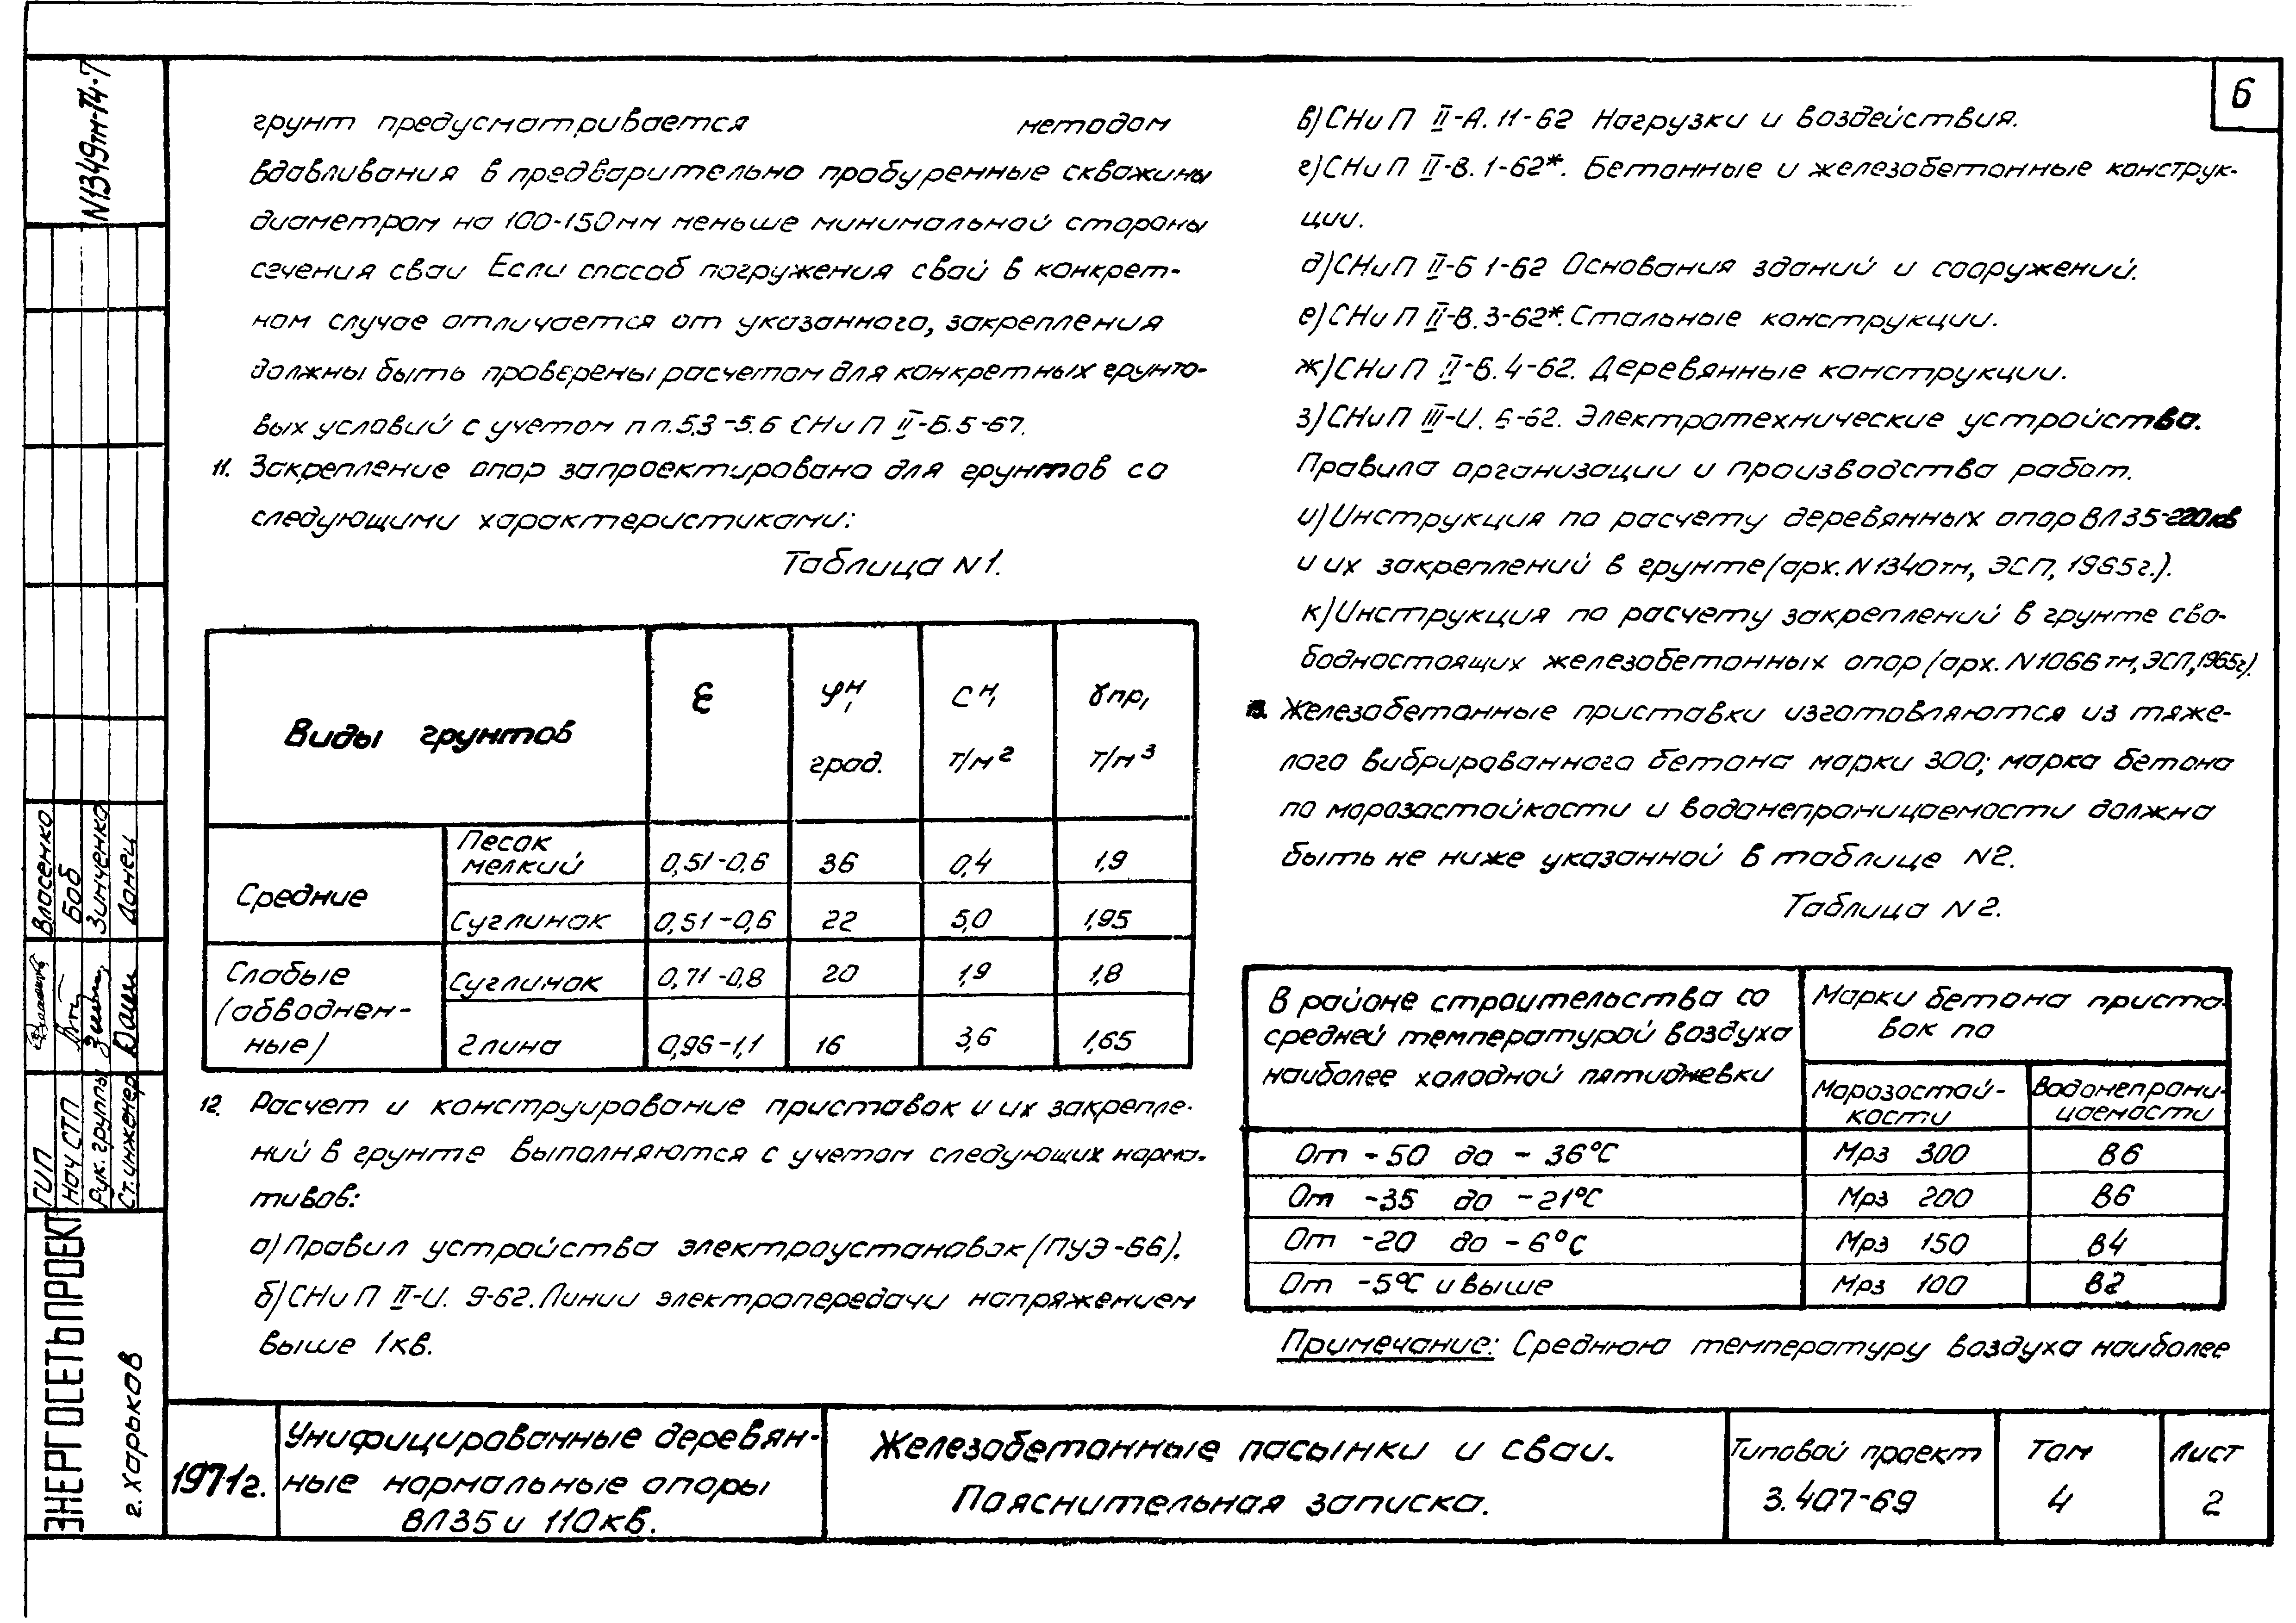 6
N1349тм-Т4-7
грунт предусматривается методом
вдавливания в предварительно пробуренные скважины
диаметром на 100-150мм меньше минимальной стороны
сечения сваи Если способ погружения свай в конкрет-
ном случае отличается от указанного, закрепления
должны быть проверены расчетом для конкретных грунто-
вых условий с учетом п п.5.3-5.6 СНиП II-Б.5-67.
11. Закрепление опор запроектировано для грунтов со
следующими характеристиками:
Таблица N1.
Виды грунтов
ε
φн, град.
Сн, т/м2
γпр, т/м3
Средние
Песок мелкий 0,51-0,6 36 0,4 1,9
Суглинок 0,51-0,6 22 5,0 1,95
Слабые (обводнен-
ные)
Суглинок 0,71-0,8 20 1,9 1,8
Глина 0,96-1,1 16 3,6 1,65
12. Расчет и конструирование приставок и их закрепле-
ний в грунте выполняются с учетом следующих норма-
тивов:
а) Правил устройства электроустановок (ПУЭ-66).
б) СНиП II-И. 9-62. Линии электропередачи напряжением
выше 1кв.
в) СНиП II-А. 11-62 Нагрузки и воздействия.
г) СНиП II-В. 1-62*. Бетонные и железобетонные конструк-
ции.
д) СНиП II-Б 1-62 Основания зданий и сооружений.
е) СНиП II-В. 3-62*. Стальные конструкции.
ж) СНиП II-В. 4-62. Деревянные конструкции.
з) СНиП III-И. 6-62. Электротехнические устройства.
Правила организации и производства работ.
и) Инструкция по расчету деревянных опор ВЛ 35-220кв
и их закреплений в грунте (арх. N1340тм, ЭСП, 1965г.).
к) Инструкция по расчету закреплений в грунте сво-
бодностоящих железобетонных опор (арх. N1066тм, ЭСП, 1965г).
13. Железобетонные приставки изготовляются из тяже-
лого вибрированного бетона марки 300; марка бетона
по морозостойкости и водонепроницаемости должна
быть не ниже указанной в таблице N2.
Таблица N2.
В районе строительства со
средней температурой воздуха
наиболее холодной пятидневки
Марки бетона приста-
вок по
Морозостой-
кости
Водонепрони-
цаемости
От -50 до -36°С Мрз 300 В6
От -35 до -21°С Мрз 200 В6
От -20 до -6°С Мрз 150 В4
От -5°С и выше Мрз 100 В2
Примечание: Среднюю температуру воздуха наиболее
ЭНЕРГОСЕТЬПРОЕКТ
г. Харьков
ГИП Власенко
Нач СТП Боб
Рук. группы Зинченко
Ст. инженер Донец
1971г.
Унифицированные деревян-
ные нормальные опоры
ВЛ 35 и 110кв.
Железобетонные пасынки и сваи.
Пояснительная записка.
Типовой проект
3.407-69
Том
4
Лист
2